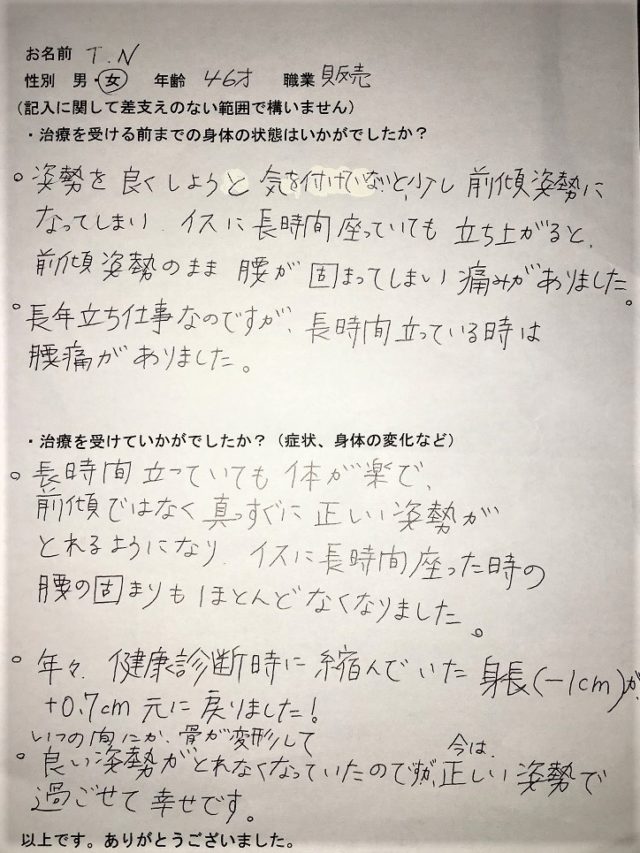 お名前 T.N
性別 男・女 年齢 46才 職業 販売
（記入に関して差支えのない範囲で構いません）
・治療を受ける前までの身体の状態はいかがでしたか？
○ 姿勢を良くしようと気を付けていないと、少し前傾姿勢に
なってしまい、イスに長時間座っていても立ち上がると、
前傾姿勢のまま腰が固まってしまい痛みがありました。
○ 長年立ち仕事なのですが、長時間立っている時は
腰痛がありました。
・治療を受けていかがでしたか？（症状、身体の変化など）
○ 長時間立っていても体が楽で、
前傾ではなく真っすぐに正しい姿勢が
とれるようになり、イスに長時間座った時の
腰の固まりもほとんどなくなりました。
○ 年々、健康診断時に縮んでいた身長(-1cm)が、
+0.7cm 元に戻りました！
いつの間にか、骨が変形して
○ 良い姿勢がとれなくなっていたのですが、今は、正しい姿勢で
過ごせて幸せです。
以上です。ありがとうございました。